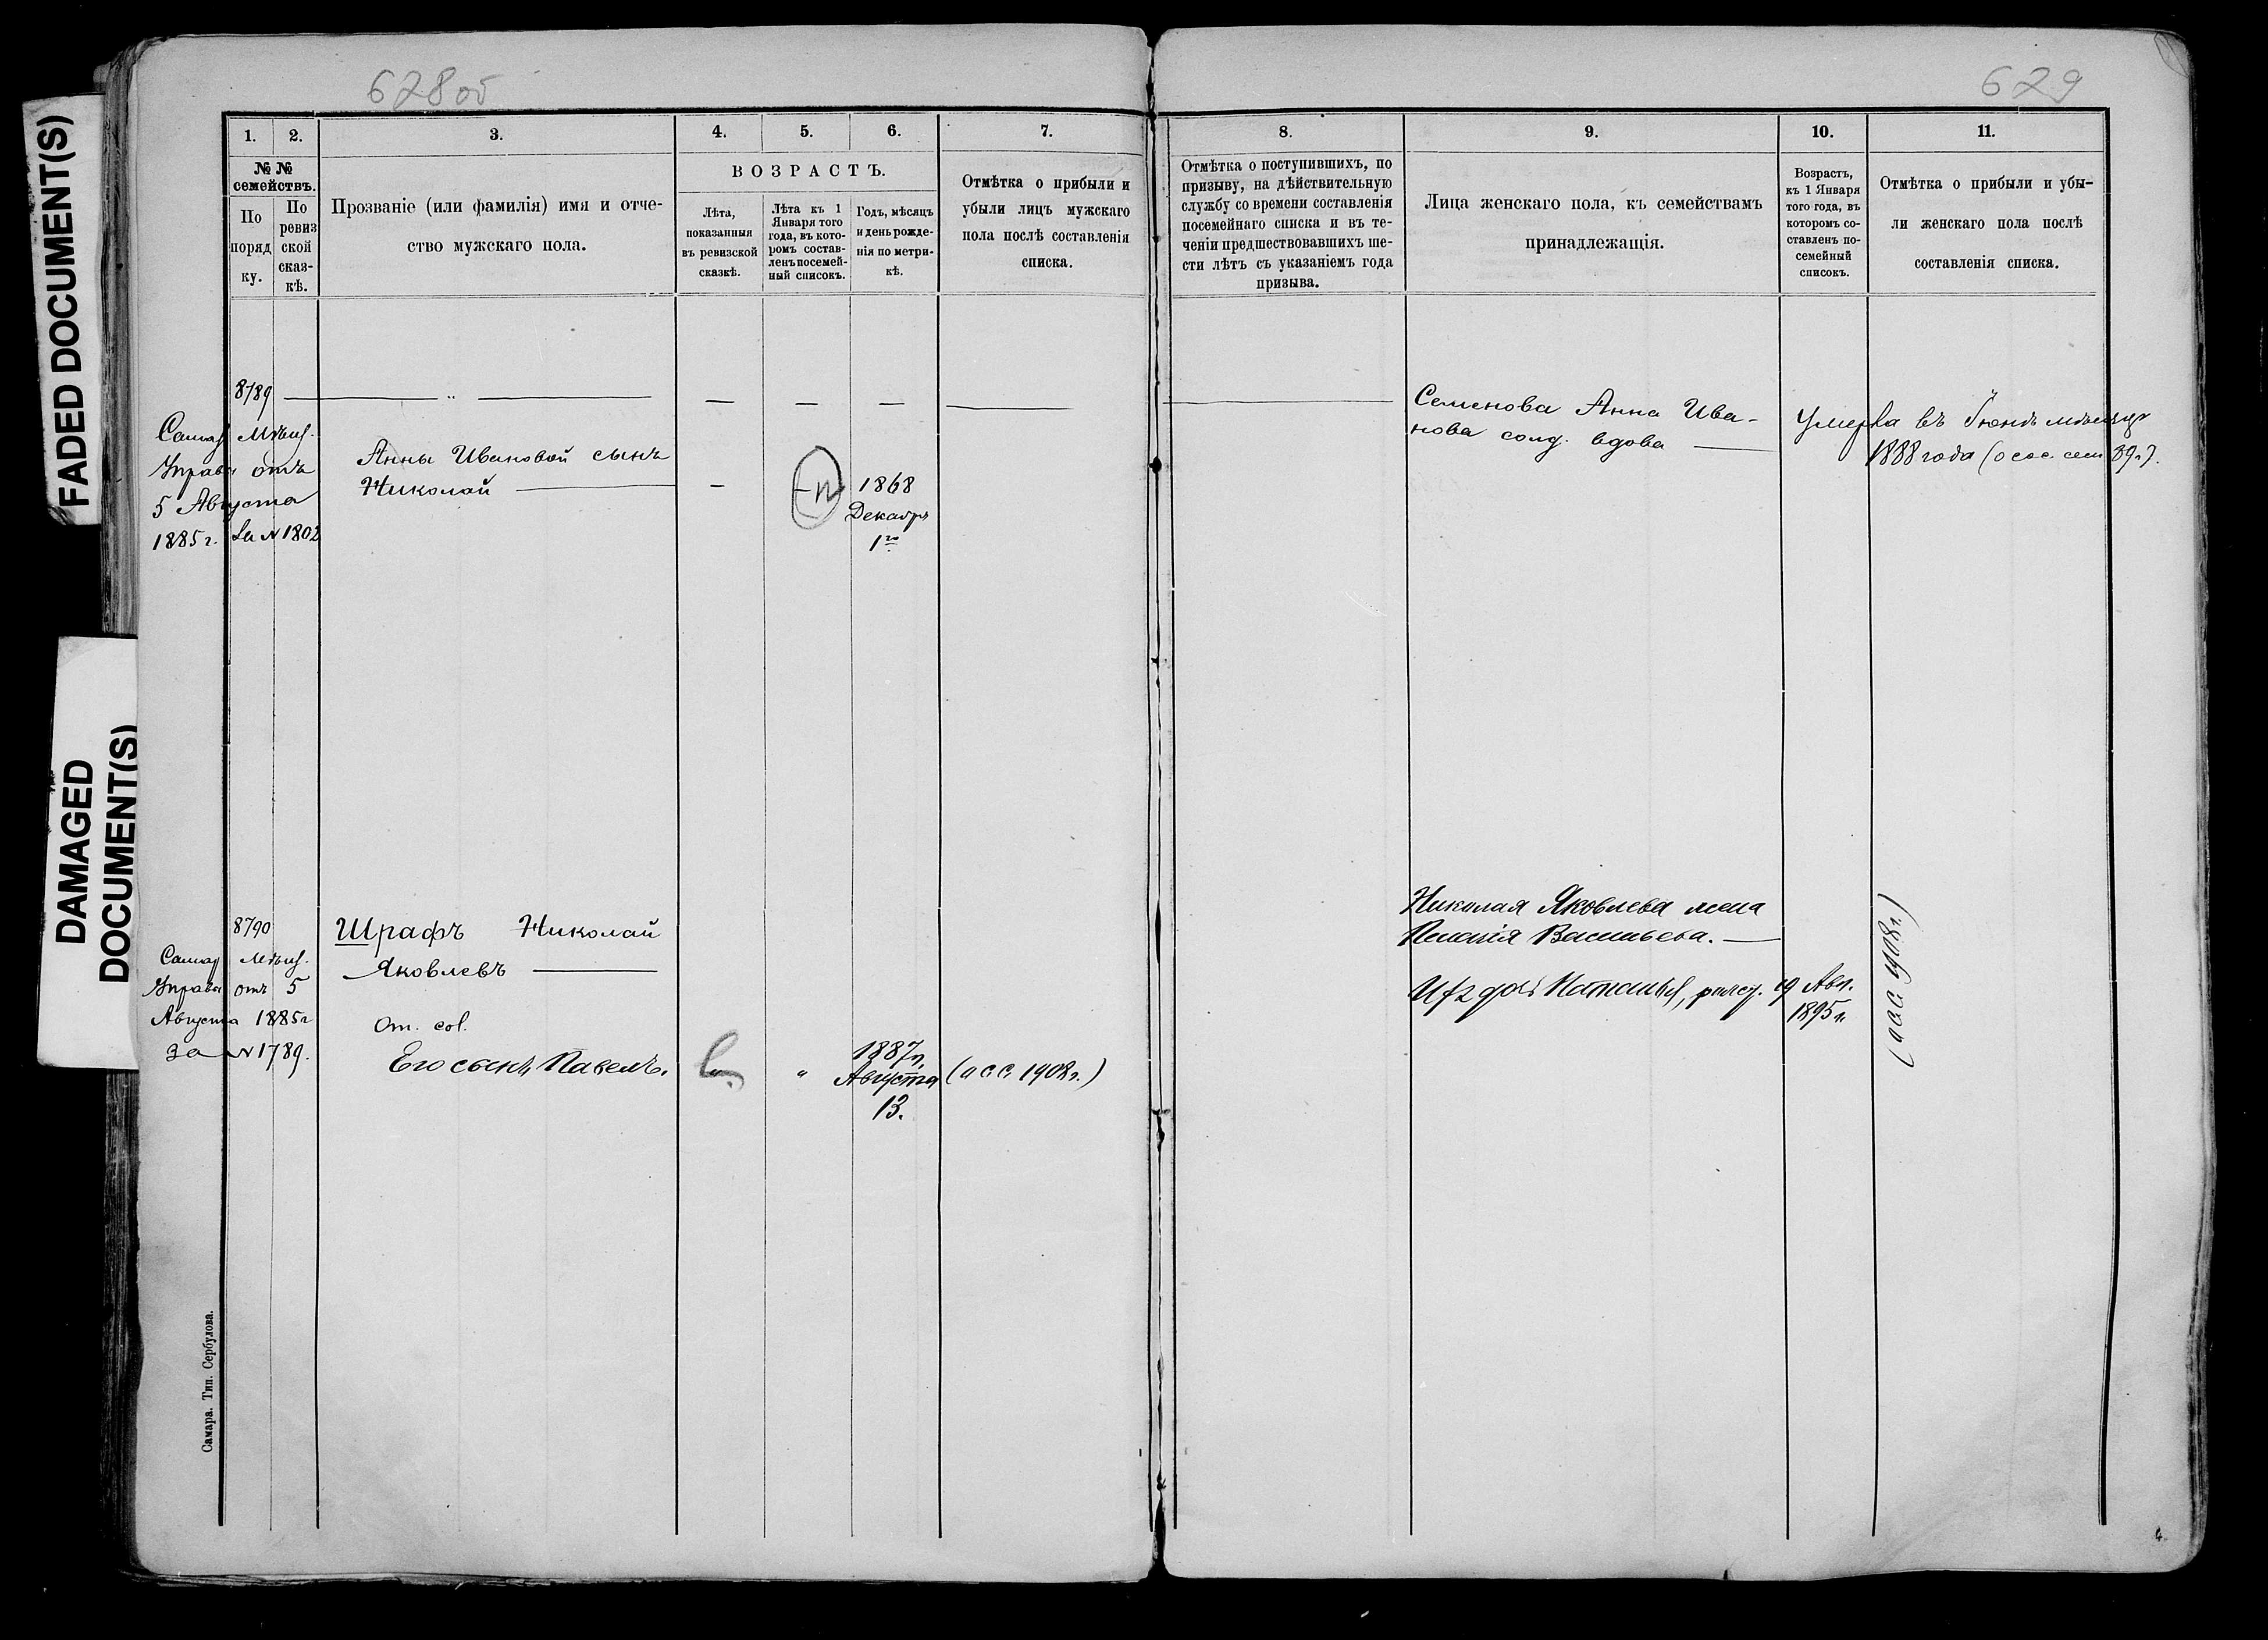 FADED DOCUMENT(S)
DAMAGED
DOCUMENT(S)
628 об
1.
2.
3.
4.
5.
6.
7.
№ №
семействъ.
По
поряд
ку.
По
ревиз
ской
сказ-
кѣ.
Прозваніе (или фамилія) имя и отче-
ство мужскаго пола.
ВОЗРАСТЪ.
Лѣта,
показанныя
въ ревизской
сказкѣ.
Лѣта къ 1
Января того
года, въ кото-
ромъ состав-
ленъ посемей-
ный списокъ.
Годъ, мѣсяцъ
и день рожде-
нія по метри-
кѣ.
Отмѣтка о прибыли и
убыли лицъ мужскаго
пола послѣ составленія
списка.
8789 — „ — — — — —
Самар Мѣщ.
Управы отъ
5 Августа
1885 г. за № 1802
Анны Ивановой сынъ
Николай — —
1868
Декабря
1го
8790
Самар Мѣщ.
Управы отъ 5
Августа 1885 г
за № 1789.
Шрафъ Николай
Яковлевъ —
От. col.
Его сынъ Павелъ.
„
1887 г.
Августа
13.
(о с с. 1908 г.)
Самара. Тип. Сербулова.
629
8.
9.
10.
11.
Отмѣтка о поступившихъ, по
призыву, на дѣйствительную
службу со времени составленія
посемейнаго списка и въ те-
ченіи предшествовавшихъ ше-
сти лѣтъ съ указаніемъ года
призыва.
Лица женскаго пола, къ семействамъ
принадлежащія.
Возрастъ,
къ 1 Января
того года, въ
которомъ со-
ставленъ по-
семейный
списокъ.
Отмѣтка о прибыли и убы-
ли женскаго пола послѣ
составленія списка.
Семенова Анна Ива-
нова солд. вдова —
Умерла въ Іюнѣ мѣсяцѣ
1888 года (о сос. сем 89 г.).
Николая Яковлева жена
Пелагія Васильева. —
Ихъ дочь Наталья, рожд. 19 Авг.
1895 г.
(о с с. 1908 г.)
4